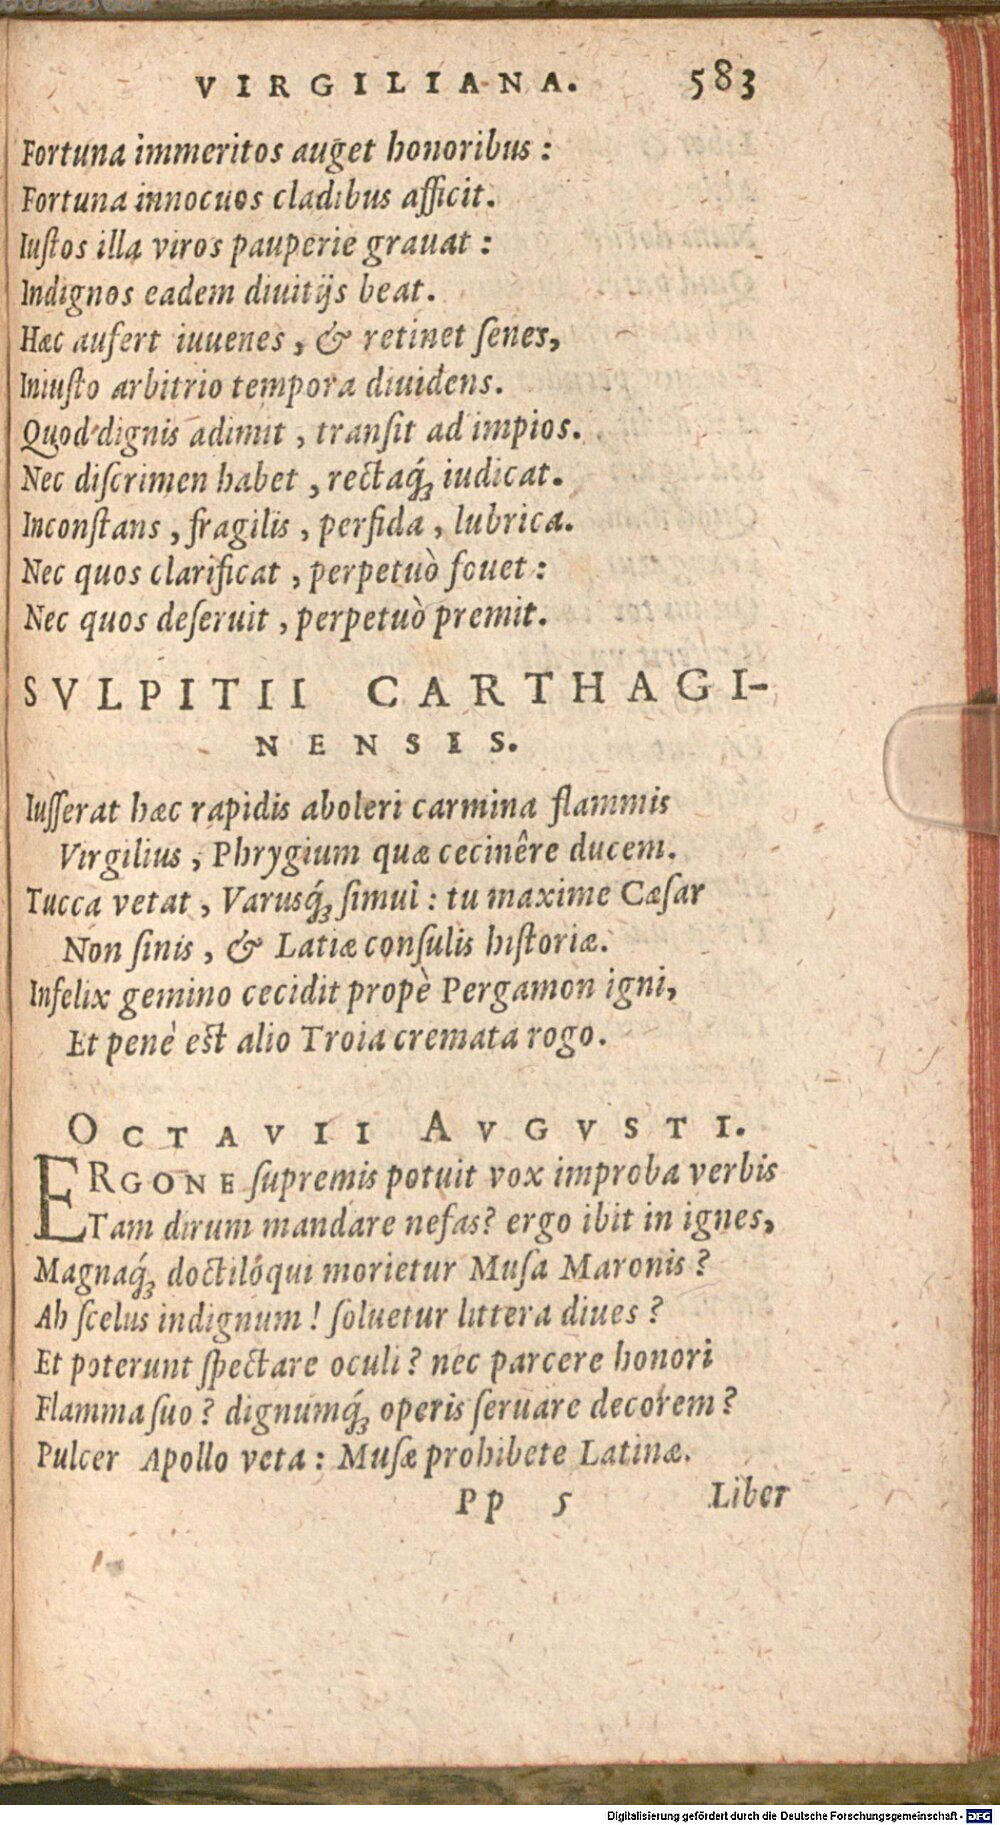 VIRGILIANA. 583
Fortuna immeritos auget honoribus :
Fortuna innocuos cladibus afficit.
Iuſtos illa viros pauperie grauat :
Indignos eadem diuitijs beat.
Hæc aufert iuuenes , & retinet ſenes,
Iniuſto arbitrio tempora diuidens.
Quod dignis adimit , tranſit ad impios.
Nec diſcrimen habet , rectaq́; iudicat.
Inconſtans , fragilis , perfida , lubrica.
Nec quos clarificat , perpetuò fouet :
Nec quos deſeruit , perpetuò premit.
SVLPITII CARTHAGI-
NENSIS.
Iuſſerat hæc rapidis aboleri carmina flammis
Virgilius , Phrygium quæ cecinêre ducem.
Tucca vetat , Varusq́; ſimul : tu maxime Cæſar
Non ſinis , & Latiæ conſulis hiſtoriæ.
Infelix gemino cecidit propè Pergamon igni,
Et penè eſt alio Troia cremata rogo.
OCTAVII AVGVSTI.
ERGONE ſupremis potuit vox improba verbis
Tam dirum mandare nefas? ergo ibit in ignes,
Magnaq́; doctilóqui morietur Muſa Maronis ?
Ah ſcelus indignum ! ſoluetur littera diues ?
Et poterunt ſpectare oculi ? nec parcere honori
Flamma ſuo ? dignumq́; operis ſeruare decorem ?
Pulcer Apollo veta : Muſæ prohibete Latinæ.
Pp 5 Liber
Digitalisierung gefördert durch die Deutsche Forschungsgemeinschaft - DFG